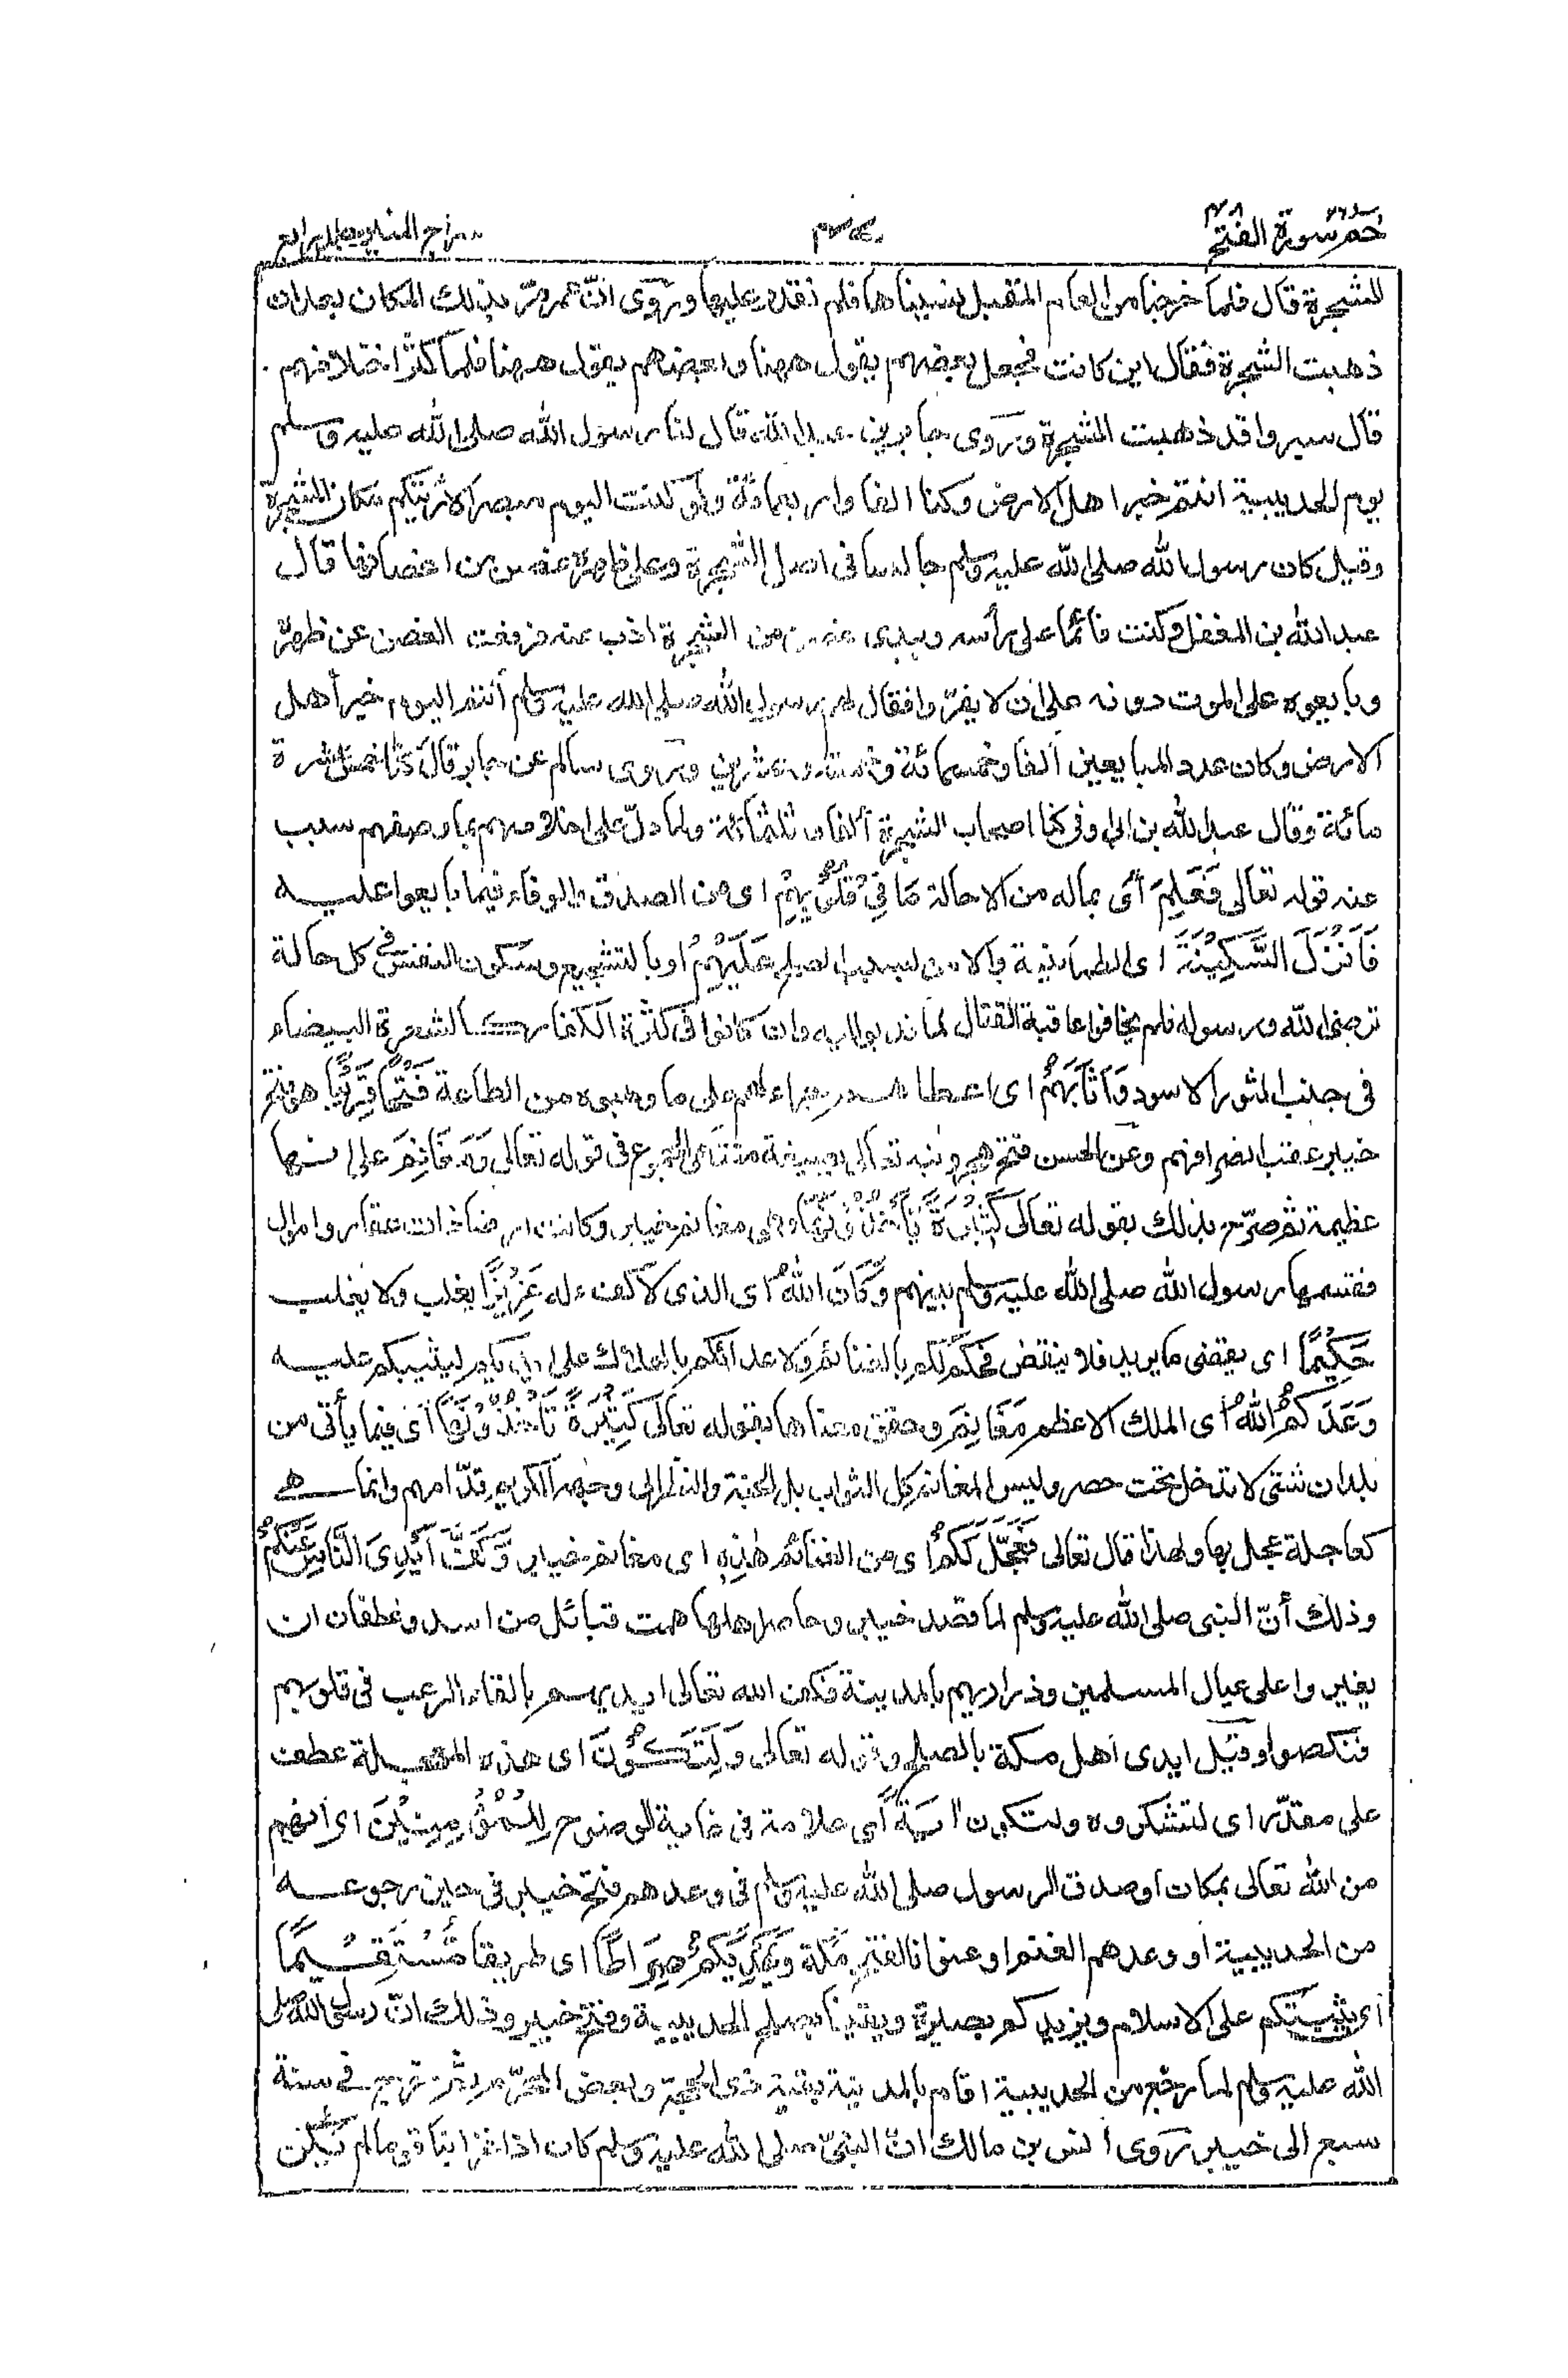 حم ٢٦ سورة الفتح ٤٨
سراج المنير جلد رابع
الشجرة قال فلما خرجنا من العام المقبل نسيناها فلم نقدر عليها وروى انّ عمر مرّ بذلك المكان بعد ان
ذهبت الشجرة فقال اين كانت فجعل بعضهم يقول ههنا وبعضهم يقول ههنا فلما كثر اختلافهم
قال سيروا قد ذهبت الشجرة وروى جابر بن عبد الله قال لنا رسول الله صلى الله عليه وسلم
يوم الحديبية انتم خير اهل الارض وكنا الفا واربعمائة ولو كنت اليوم مبصرا لاريتكم مكان الشجرة
وقيل كان رسول الله صلى الله عليه وسلم جالسا فى اصل الشجرة وعلى ظهره غصن من اغصانها قال
عبد الله بن المغفل وكنت قائما على رأسه وبيدى غصن من الشجرة اذب عنه فرفعت الغصن عن ظهره
وبايعوه على الموت دونه على ان لا يفرّوا فقال لهم رسول الله صلى الله عليه وسلم أنتم اليوم خير أهل
الارض وكان عدد المبايعين ألفا وخمسمائة وخمسة وعشرين وروى سالم عن جابر قال كنا خمس عشرة
مائة وقال عبد الله بن ابى اوفى كنا اصحاب الشجرة ألفا وثلثمائة ولما دلّ على اخلاصهم بما وصفهم سبب
عنه قوله تعالى فَعَلِمَ أى بماله من الاحاطة مَا فِىْ قُلُوْبِهِمْ اى من الصدق والوفاء فيما بايعوا عليه
فَاَنْزَلَ السَّكِيْنَةَ اى الطمأنينة والامن بسبب الصلح عَلَيْهِمْ او بالتشجيع وسكون النفس فى كل حالة
ترضى الله ورسوله فلم يخافوا عاقبة القتال لما ندبوا اليه وان كانوا فى كثرة الكفار كالشعرة البيضاء
فى جنب الثور الاسود وَاَثَابَهُمْ اى اعطاهم جزاء لهم على ما وهبوه من الطاعة فَتْحًا قَرِيْبًا هو فتح
خيبر عقب انصرافهم وعن الحسن فتح هجر ونبه تعالى بصيغة منتهى الجموع فى قوله تعالى وَمَغَانِمَ على انها
عظيمة ثم صرّح بذلك بقوله تعالى كَثِيْرَةً يَأْخُذُوْنَهَا وهى مغانم خيبر وكانت ارضا ذات عقار واموال
فقسمها رسول الله صلى الله عليه وسلم بينهم وَكَانَ اللهُ اى الذى لا كفء له عَزِيْزًا يغلب ولا يغلب
حَكِيْمًا اى يقضى ما يريد فلا ينقض فحكم لكم بالغنائم ولاعدائكم بالهلاك على ايديكم ليثيبكم عليه
وَعَدَكُمُ اللهُ أى الملك الاعظم مَغَانِمَ وحقق معناها بقوله تعالى كَثِيْرَةً تَأْخُذُوْنَهَا أى فيما يأتى من
بلدان شتى لا تدخل تحت حصر وليس المغانم كل الثواب بل الجنة والنظر الى وجهه الكريم قدّامهم وانما هى
كعاجلة عجل بها ولهذا قال تعالى فَعَجَّلَ لَكُمْ اى من الغنائم هٰذِهٖ اى مغانم خيبر وَكَفَّ اَيْدِىَ النَّاسِ عَنْكُمْ
وذلك أنّ النبى صلى الله عليه وسلم لما قصد خيبر وحاصر اهلها همت قبائل من اسد وغطفان ان
يغيروا على عيال المسلمين وذراريهم بالمدينة فكف الله تعالى ايديهم بالقاء الرعب فى قلوبهم
فنكصوا وقيل ايدى اهل مكة بالصلح وقوله تعالى وَلِتَكُوْنَ اى هذه المعجلة عطف
على مقدّر اى لتشكروه ولتكون اٰيَةً أى علامة فى غاية الوضوح لِلْمُؤْمِنِيْنَ اى انهم
من الله تعالى بمكان أو صدق الرسول صلى الله عليه وسلم فى وعدهم فتح خيبر فى حين رجوعه
من الحديبية او وعدهم الغنم او عنوانا لفتح مكة وَيَهْدِيَكُمْ صِرَاطًا اى طريقا مُّسْتَقِيْمًا
أى يثبتكم على الاسلام ويزيدكم بصيرة ويقينا بصلح الحديبية وفتح خيبر وذلك انّ رسول الله صلى
الله عليه وسلم لما رجع من الحديبية اقام بالمدينة بقية ذى الحجة وبعض المحرّم ثم خرج فى سنة
سبع الى خيبر روى انس بن مالك انّ النبىّ صلى الله عليه وسلم كان اذا غزا بنا قوما لم يكن